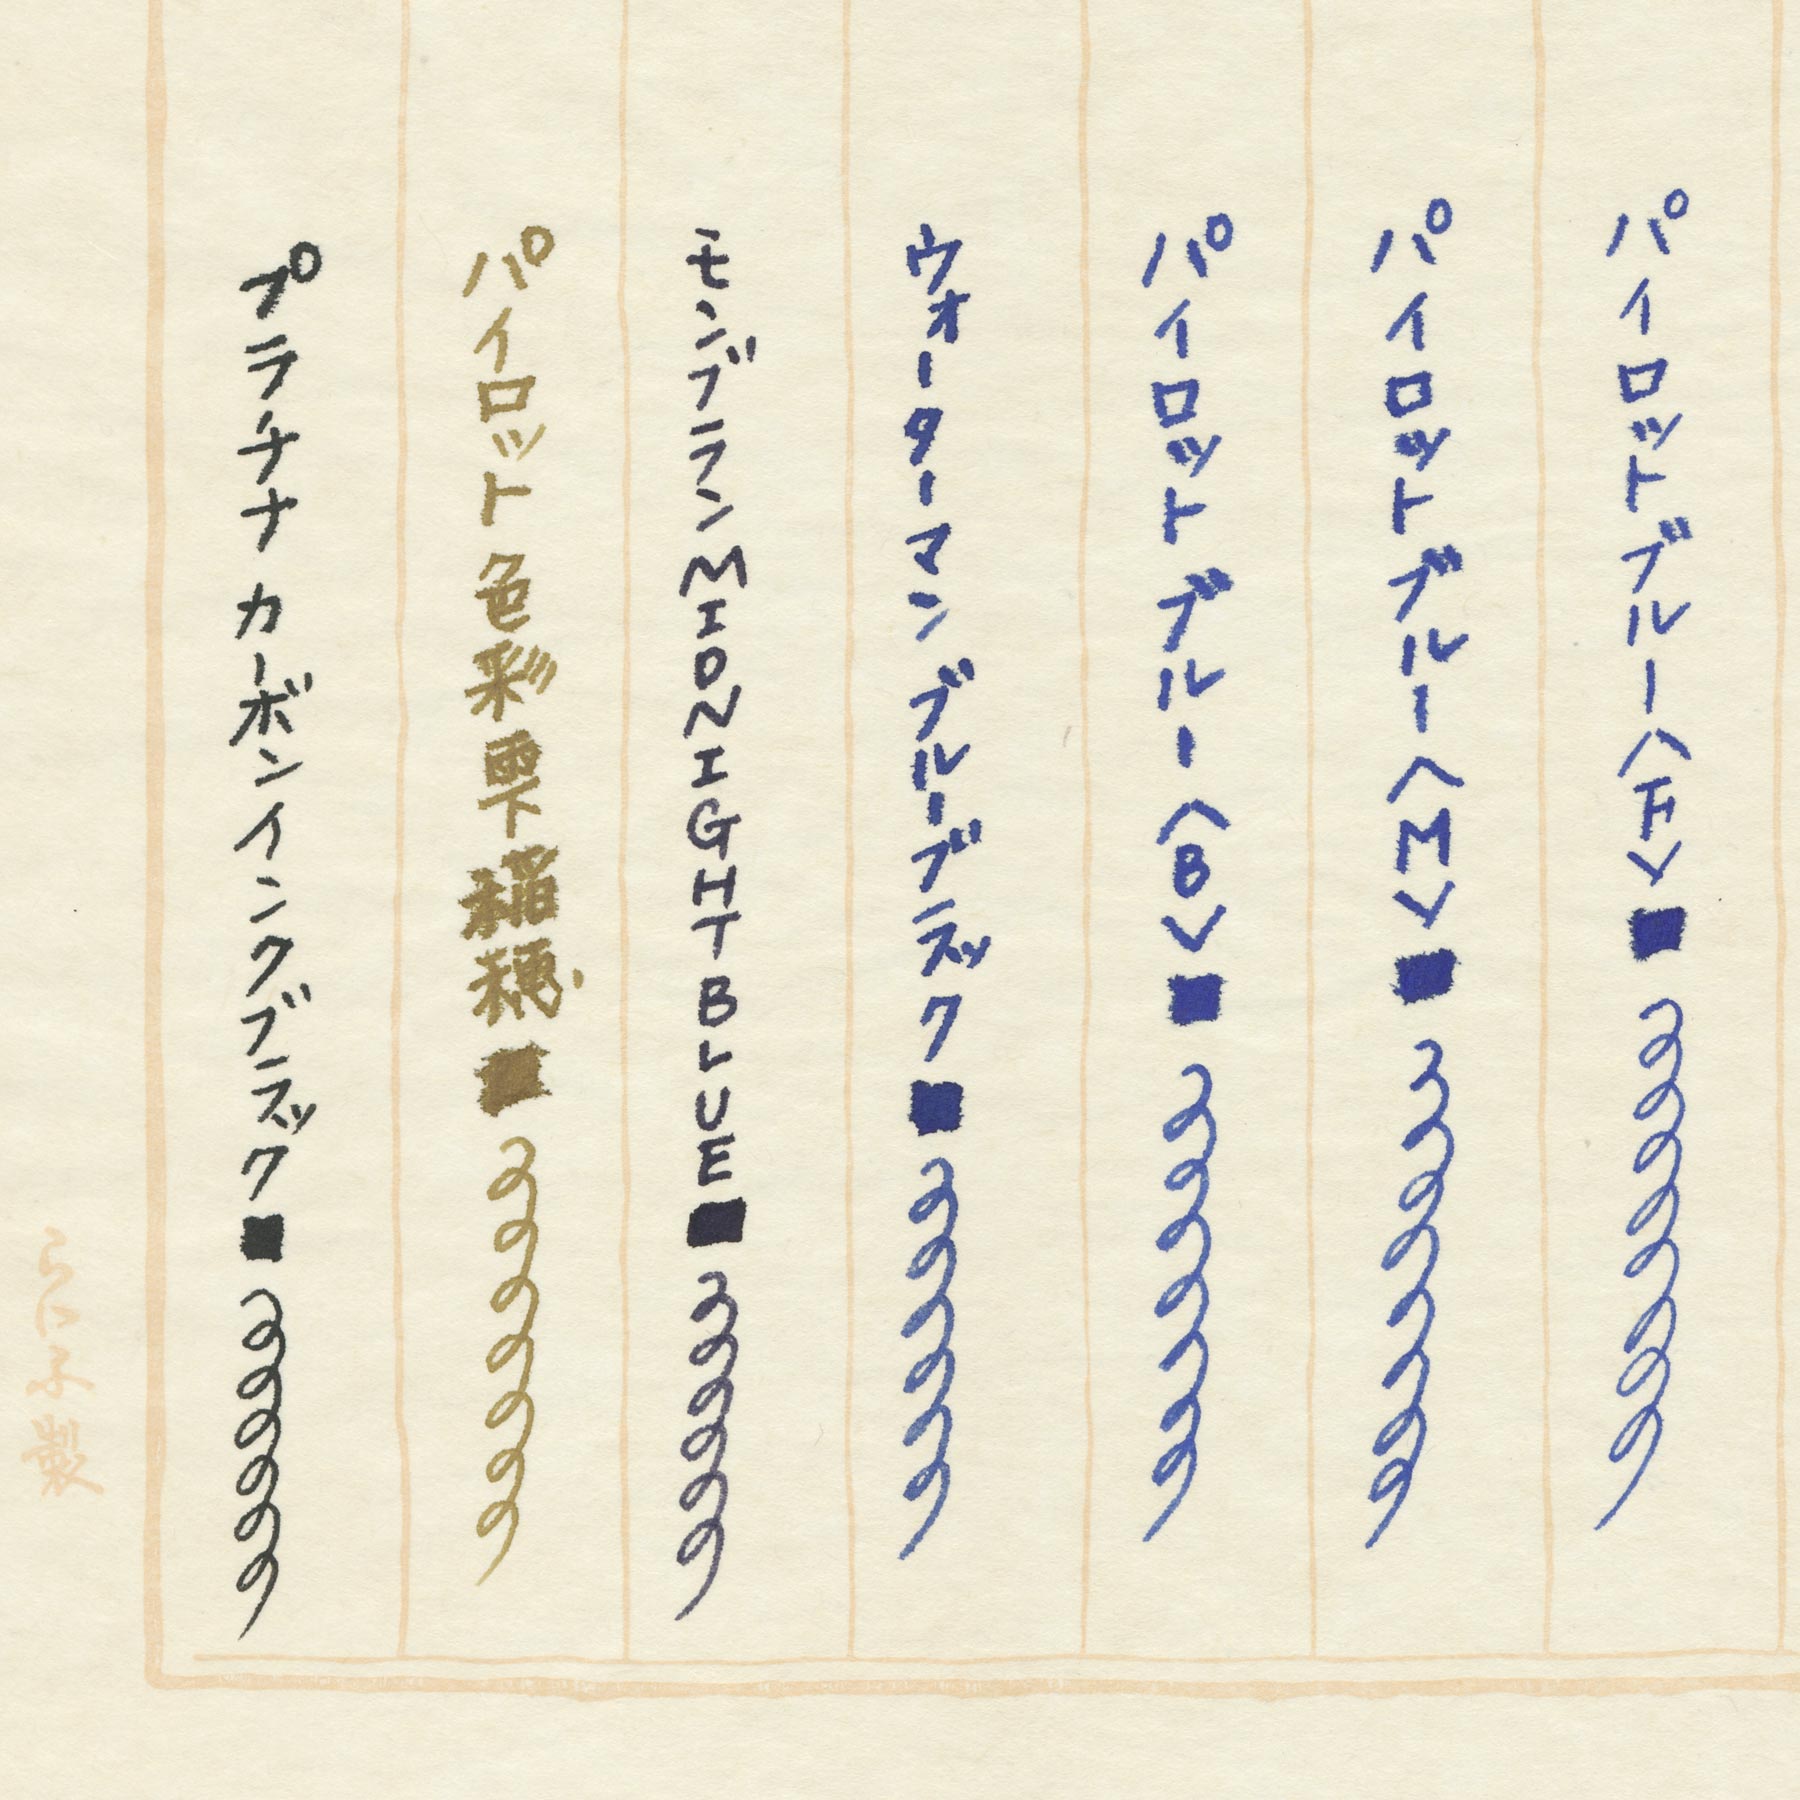 パイロットブルー〈F〉■
パイロットブルー〈M〉■
パイロット ブルー〈B〉■
ウォーターマン ブルーブラック■
モンブラン MIDNIGHT BLUE■
パイロット 色彩雫 稲穂■
プラチナ カーボンインクブラック■